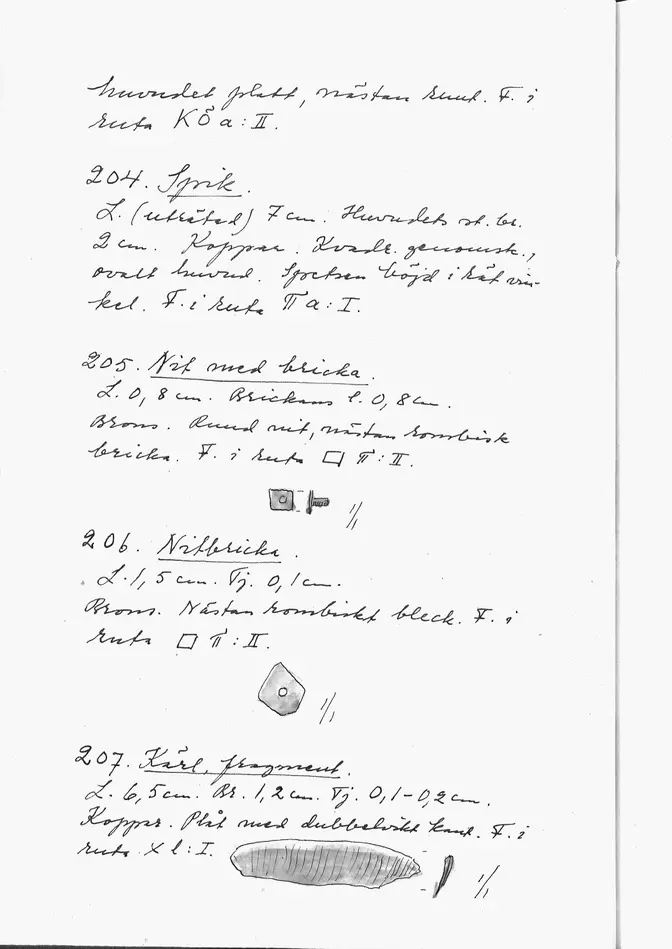 huvudet platt, nästan rund. F. i
ruta KÖa:II.
204. Spik.
L. (uträtad) 7 cm. Huvudets st. br.
2 cm. Koppar. Kvadr. genomsk.,
ovalt huvud. Spetsen böjd i rät vin-
kel. F. i ruta πa:I.
205. Nit med bricka.
L. 0,8 cm. Brickans l. 0,8 cm.
Brons. Rund nit, nästan rombisk
bricka. F. i ruta □ π:II.
1/1
206. Nitbricka.
L. 1,5 cm. Tj. 0,1 cm.
Brons. Nästan rombiskt bleck. F. i
ruta □ π:II.
1/1
207. Kärl, fragment.
L. 6,5 cm. Br. 1,2 cm. Tj. 0,1-0,2 cm.
Koppar. Plåt med dubbelvikt kant. F. i
ruta Xl:I.
1/1